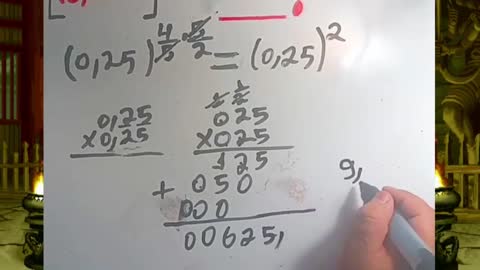 (0,25)^{4/5 · 5/2} = (0,25)^2
0,25
×0,25
2 2
025
×025
125
+ 050
000
00625,
9,